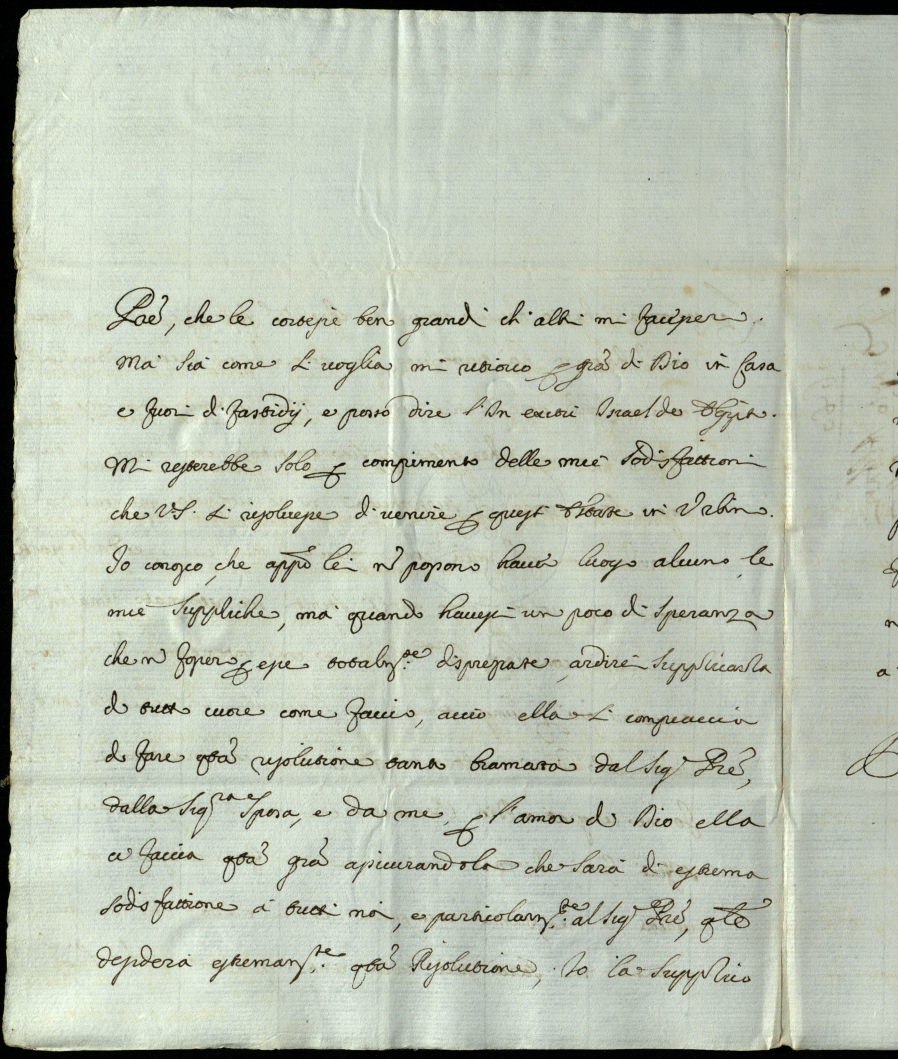 Prẽ, che le cortesie ben grandi ch'altri mi facesser.
Ma sia come si voglia mi ritrovo ꝑ grã di Dio in Casa
e fuori di fastidij, e posso dire l'In exitu Israel de Egypt.
Mi resterebbe solo ꝑ compimento delle mie sodisfattioni
che V.S. si risolvesse di venire ꝑ quest'Estate in Urbino.
Io conosco, che appõ lei nõ possono haver luogo alcuno le
mie suppliche, ma quando havessi un poco di speranza
che nõ fosser ꝑ esse totalm.te disprezzate, ardirei supplicarla
di tutto cuore come faccio, acciò ella si compiaccia
di fare qstã risolutione tanto bramata dal Sig.r Prẽ,
dalla Sig.ra Sposa, e da me, ꝑ l'amor di Dio ella
ci faccia qstã grã assicurandola che sarà di estrema
sodisfattione à tutti noi, e particolarm.te al Sig.r Prẽ, qlẽ
desidera estremam.te qstã Risolutione, Io la supplico